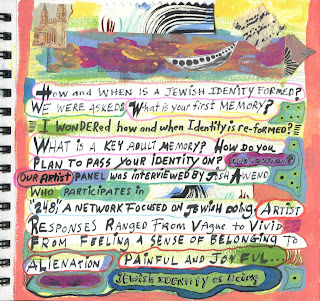 How and WHEN IS A JEWISH IDENTITY FORMED?
WE WERE ASKED: What is your first MEMORY?
I WONDERED how and when Identity is re-formed?
WHAT IS A KEY ADULT MEMORY? HOW DO YOU
PLAN TO PASS YOUR IDENTITY ON?
OUR ARTIST PANEL was interviewed by
WHO PARTICIPATES in
"248", A NETWORK FOCUSED ON JEWISH DOING ARTIST
RESPONSES RANGED FROM VAGUE to VIVID
FROM FEELING A SENSE OF BELONGING TO
ALIENATION PAINFUL AND JOYFUL
JEWISH IDENTITY as Being